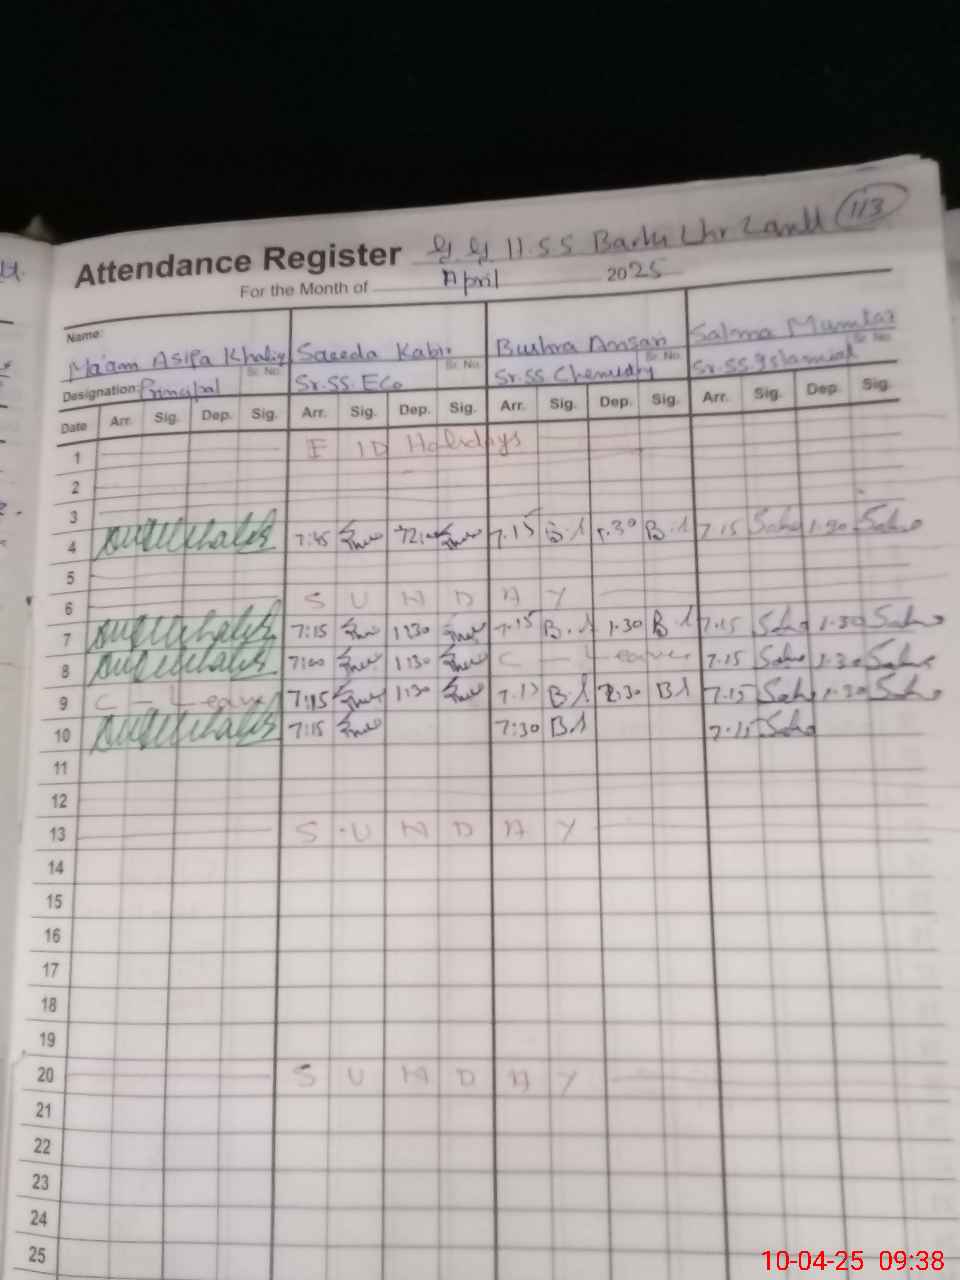 113
Attendance Register G G H.SS
For the Month of April 2025
Name: Ma'am Asifa Khaliq Saeeda Kabir Bushra Ansari Salma Mumtaz
Sr. No. Sr. No. Sr. No.
Designation: Principal Sr.SS. Eco Sr.SS Chemistry Sr.SS. Islamiat
Date Arr. Sig. Dep. Sig. Arr. Sig. Dep. Sig. Arr. Sig. Dep. Sig. Arr. Sig. Dep. Sig.
1 E ID Holidays
2
3
4 7:45 7.15 B.A 1.30 B.A 7.15 1.30
5
6 S U N D A Y
7 7:15 1230 7.15 B.A 1.30 B.A 7.15 1.30
8 7:00 1:30 C - Leave 7.15 1.30
9 C - Leave 7:15 1:30 7.15 BA 1.30 BA 7.15 1.30
10 7:15 7:30 BA 7.15
11
12
13 S U N D A Y
14
15
16
17
18
19
20 S U N D A Y
21
22
23
24
25
10-04-25 09:38